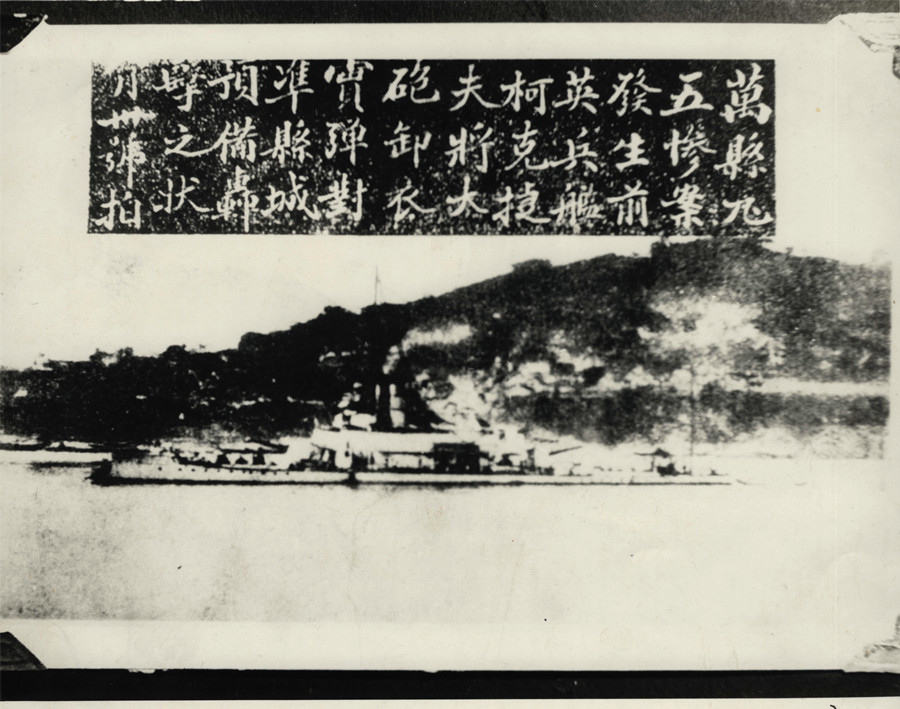 萬縣九
五慘案
發生前
英兵艦
柯克捷
夫將大
砲卸衣
實弹對
準縣城
預備轟
擊之狀
月卅號拍